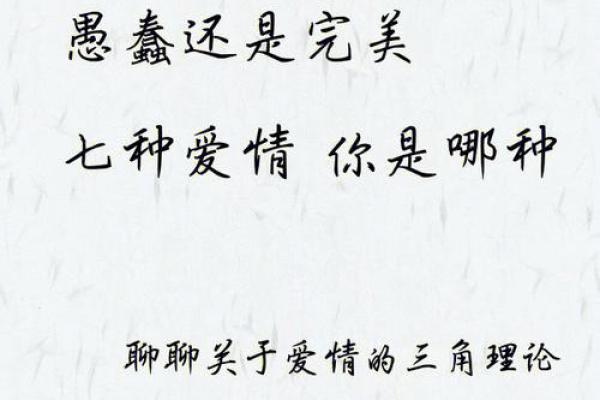 愚蠢还是完美
七种爱情 你是哪种
聊聊关于爱情的三角理论